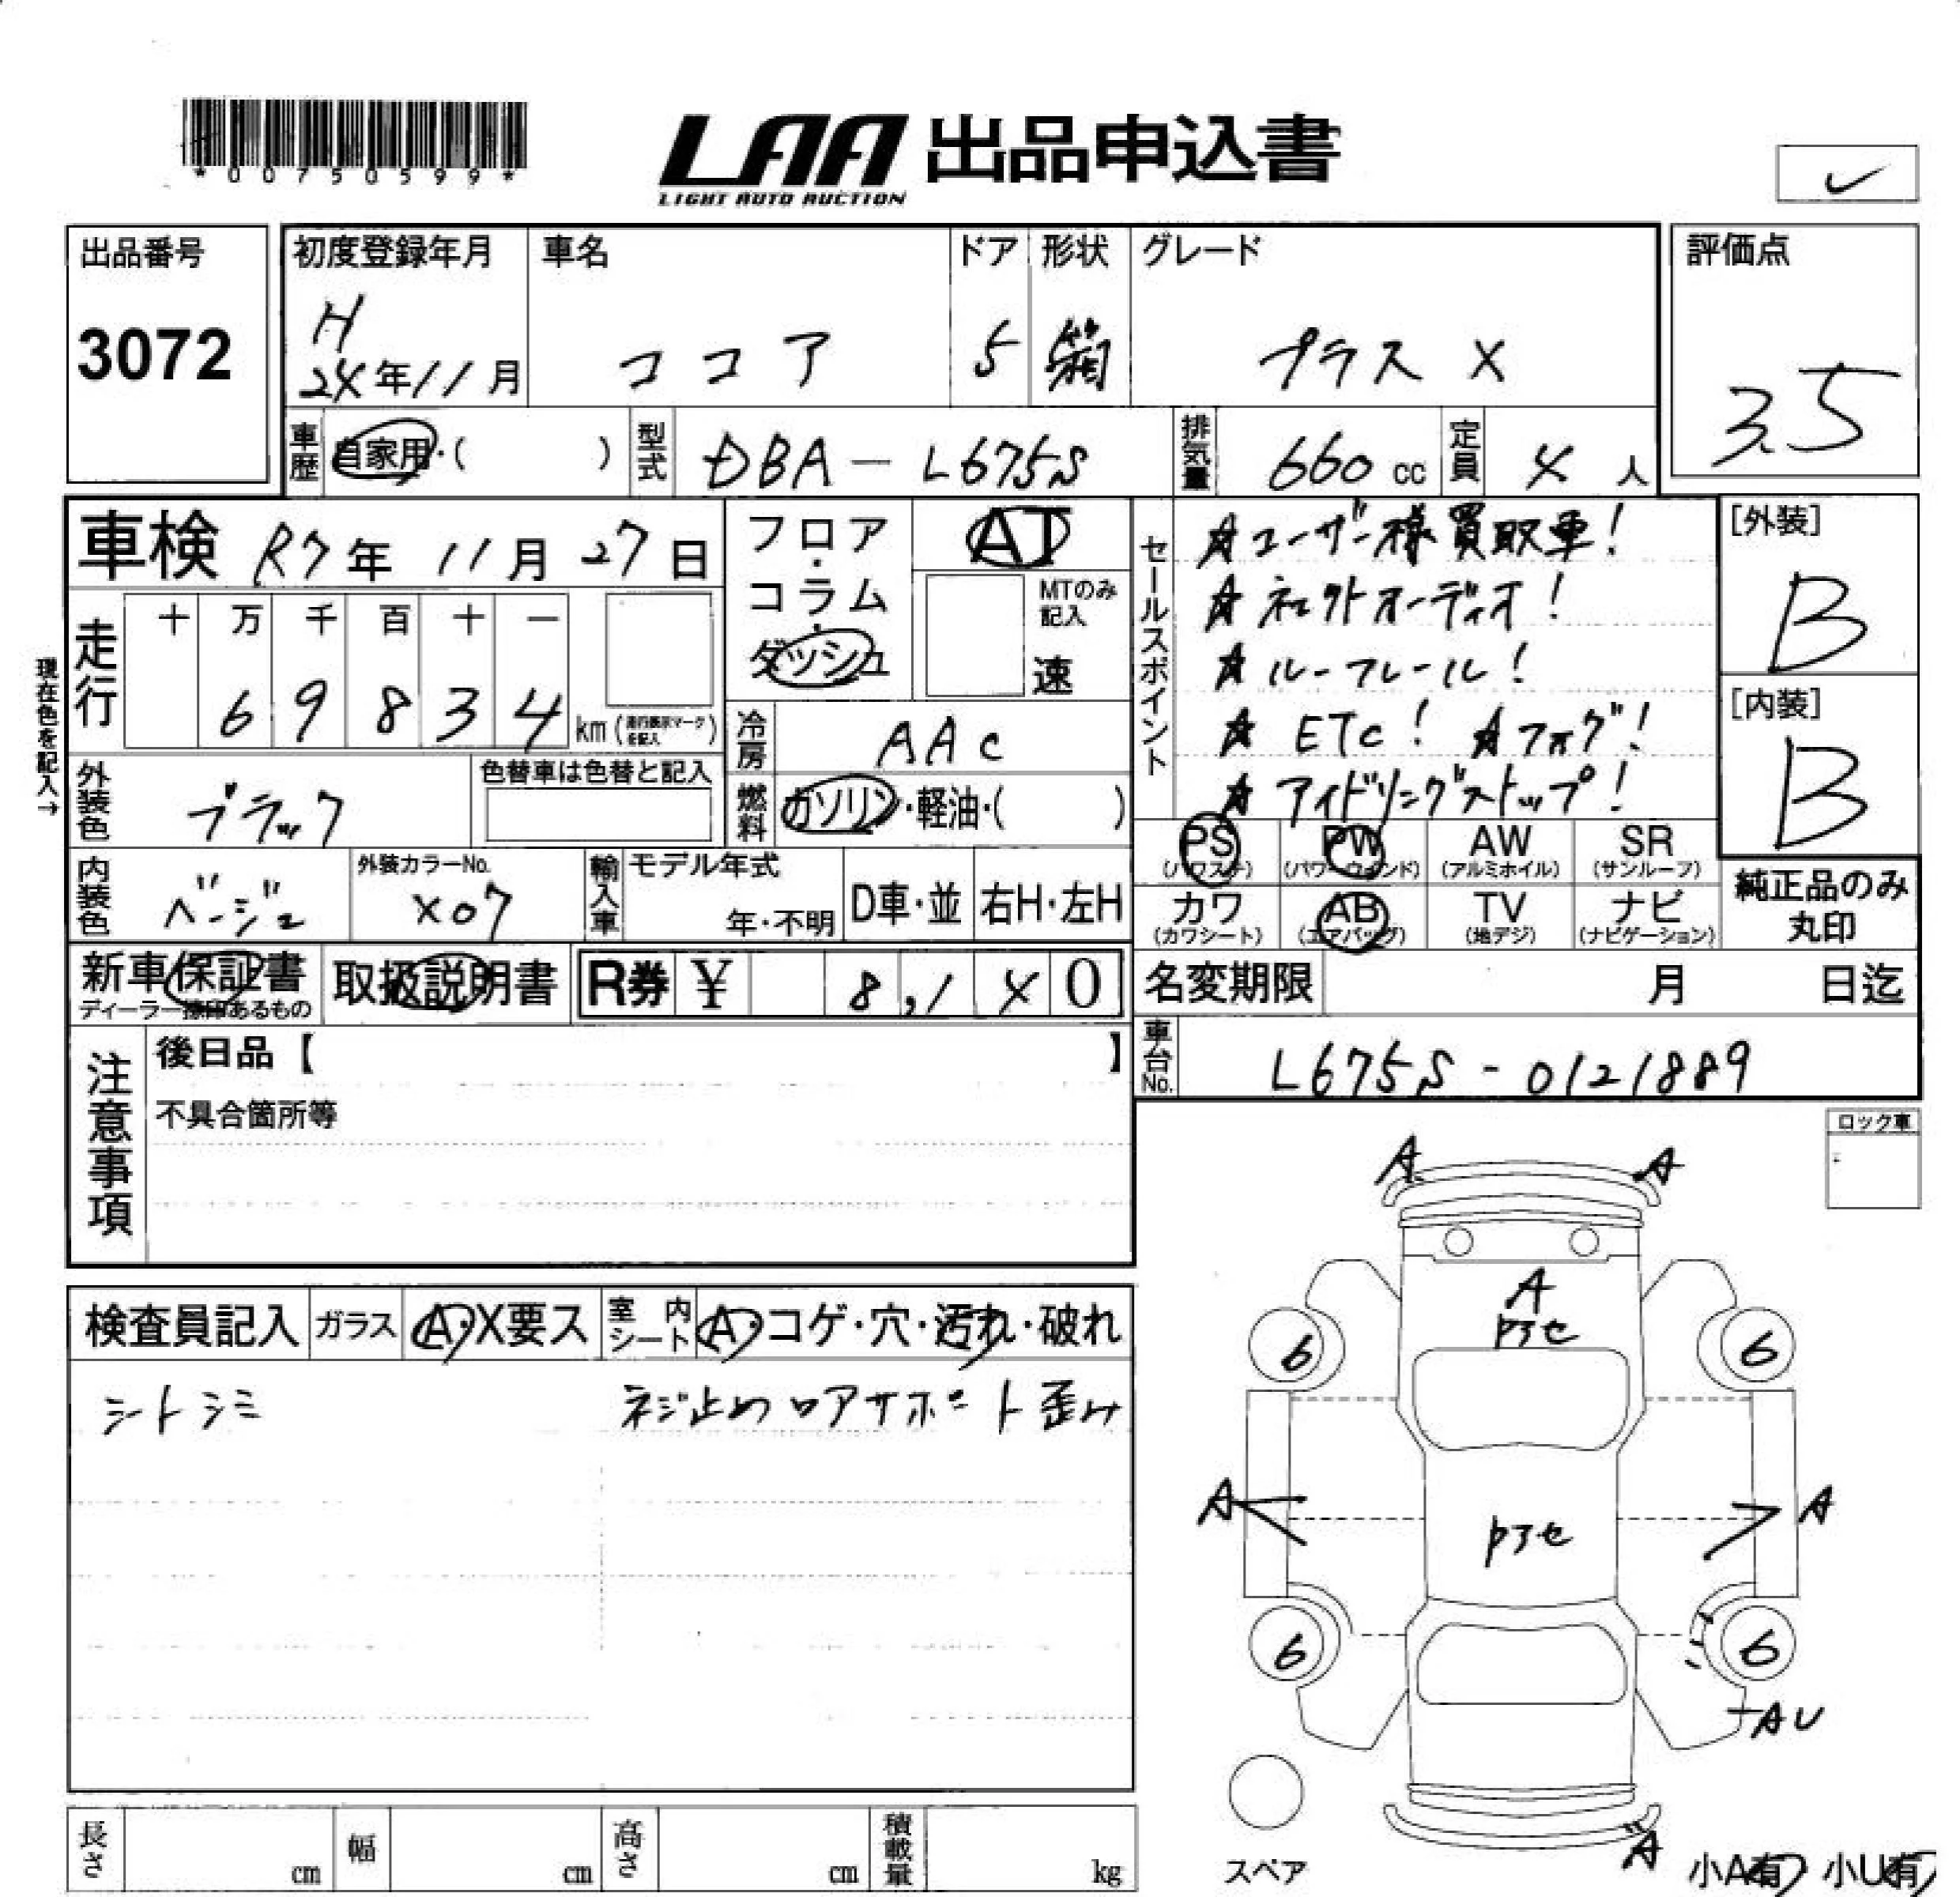 *00750599*
LAA 出品申込書
LIGHT AUTO AUCTION
出品番号
3072
初度登録年月
H
24年11月
車名
ココア
ドア
5
形状
箱
グレード
プラス X
評価点
3.5
車歴
自家用・( )
型式
DBA-L675S
排気量
660 cc
定員
4 人
車検 R7年 11月 27日
フロア・コラム・ダッシュ
AT
MTのみ記入
速
現在色を記入→
走行
十 万 千 百 十 一
6 9 8 3 4 km (走行表示マークを記入)
冷房
AAC
燃料
ガソリン・軽油・( )
外装色
ブラック
色替車は色替と記入
内装色
ベージュ
外装カラーNo.
X07
輸入車
モデル年式
年・不明
D車・並
右H・左H
セールスポイント
★ユーザー様買取車!
★ネェクトオーディオ!
★ルーフレール!
★ETC! ★フォグ!
★アイドリングストップ!
[外装]
B
[内装]
B
PS (パワステ)
PW (パワーウィンド)
AW (アルミホイル)
SR (サンルーフ)
カワ (カワシート)
AB (エアバッグ)
TV (地デジ)
ナビ (ナビゲーション)
純正品のみ丸印
新車保証書
ディーラー捺印あるもの
取扱説明書
R券 ¥ 8,140
名変期限 月 日迄
車台No.
L675S-0121889
注意事項
後日品【 】
不具合箇所等
ロック車
検査員記入
ガラス
A・X要ス
室内シート
A・コゲ・穴・汚れ・破れ
シートシミ
ネジ止めロアサポート歪み
A
A
A
トアセ
6
6
A
A
トアセ
6
6
AU
A
スペア
小A有 小U有
長さ cm
幅 cm
高さ cm
積載量 kg